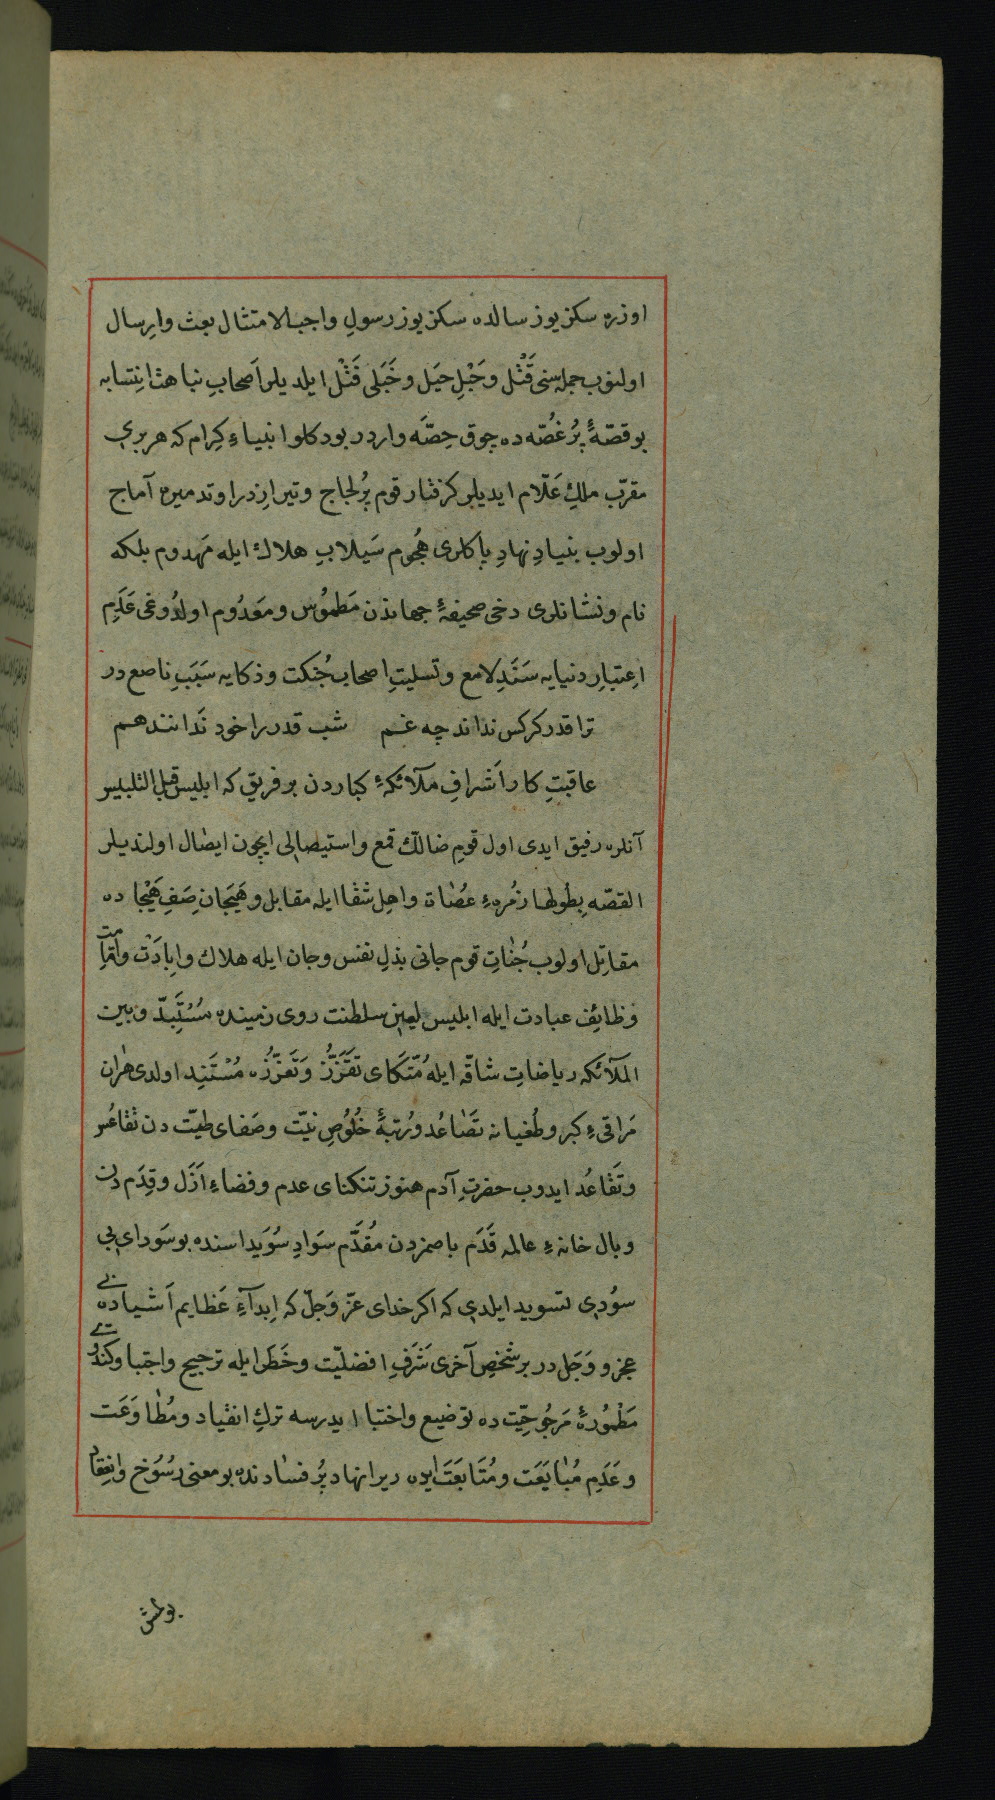 اوزره سكز يوز سالده سكز يوز رسولِ واجب الامتثال بعث وارسال
اولنوب جمله سنى قَتْل وحَبْلِ حيَل وخَبَلى فَتْل ايلديلر اَصحابِ نباهت انِتسابه
بو قصّهٔ پُر غُصّه ده چوق حِصَّه واردر بو دكلو انبياءِ كِرام كه هر برى
مقرّب ملكِ عَلّام ايديلر كرفتار قوم پُر لجاج وتير ازدرا وتدميره آماج
اولوب بنيادِ نهادِ پاكلرى هُجوم سَيلابِ هلاك ايله مَهدوم بلكه
نام ونشانلرى دخى صحيفهٔ جهاندن مَطموُس ومَعدُوم اولدُوغى عَدَمِ
اعِتبارِ دنيايه سَنَدِ لامع وتسليتِ اصحاب نُكت وذكايه سَبَبِ ناصع در
ترا قدر كركس نداند چه غم شب قدر را خود نَدانند هم
عاقبتِ كار اَشرافِ ملآئكهٔ كباردن بر فريق كه ابليس قبل التلبيس
آنلره رفيق ايدى اول قومِ ضالّك قمع واستيصالى ايچون ايصٰال اولنديلر
القصّه بِطولها زمُرهءِ عُصٰاة واهل شقا ايله مقابل وهَيَجان صَفِ هَيْجا ده
مقاتِل اولوب جُناتِ قوم جانى بذلِ نفس وجان ايله هلاك وابِادَتْ واقامت
وظائِف عبادت ايله ابليس لعين سلطنت روى زمينده مُسْتَبِدّ وبين
الملآئكه رياضاتِ شاقّه ايله مُتّكَاى تقَزّز وَتَعَزُّزه مُسْتَنِد اولدى هران
مَراقىءِ كبر وطُغيانه تصَٰاعُد ورُتبهٔ خُلُوصِ نيّت وصَفاى طيّت دن تقاعُس
وتَقٰاعُد ايدوب حضرتِ آدم هنوز تنكناى عدم وفضاءِ اَزَل وقِدَم دن
وبال خانهءِ عالمه قَدَم باصمزدن مُقَدَّم سَوادِ سُوَيدا سنده بو سَوداى بى
سوُدى تسويد ايلدى كه اكر خداى عزّ وَجلّ كه اِبدآءِ عَظايم اَشياده بى
عجز و وَجَل در بر شخصِ آخرى شَرَفِ افضليّت وخَطَر ايله ترجيح واجتبا وكندويى
مَطْموُرهٔ مَرجُوحِيّت ده توضيع واختبا ايدرسه تركِ انقياد ومُطٰاوَعَت
وعَدَمِ مُبٰايَعَت ومُتَابَعَت ايده ديرا نهاد پُر فسٰادنده بو معنى رسُوُخ وانعِقاد
بولمش